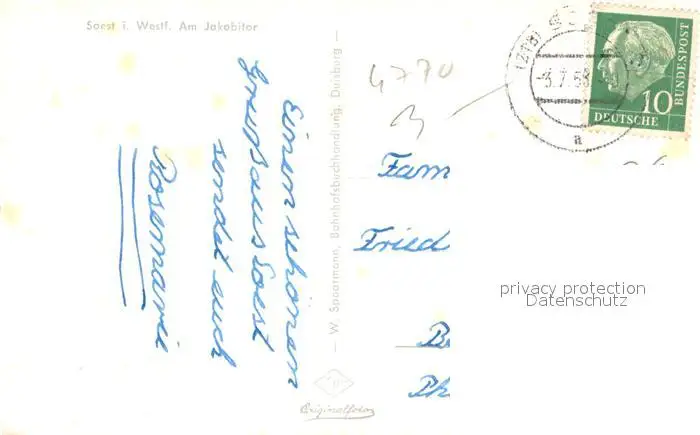 Soest i. Westf. Am Jakobitor
Einen schönen
Gruß aus Soest
sendet euch
Rosemarie
— W. Spaarmann, Bahnhofsbuchhandlung, Duisburg —
Originalfoto
4770
(21b)
-3.7.58
a
10
DEUTSCHE
BUNDESPOST
Fam
Fried
privacy protection
Datenschutz
B
Ph